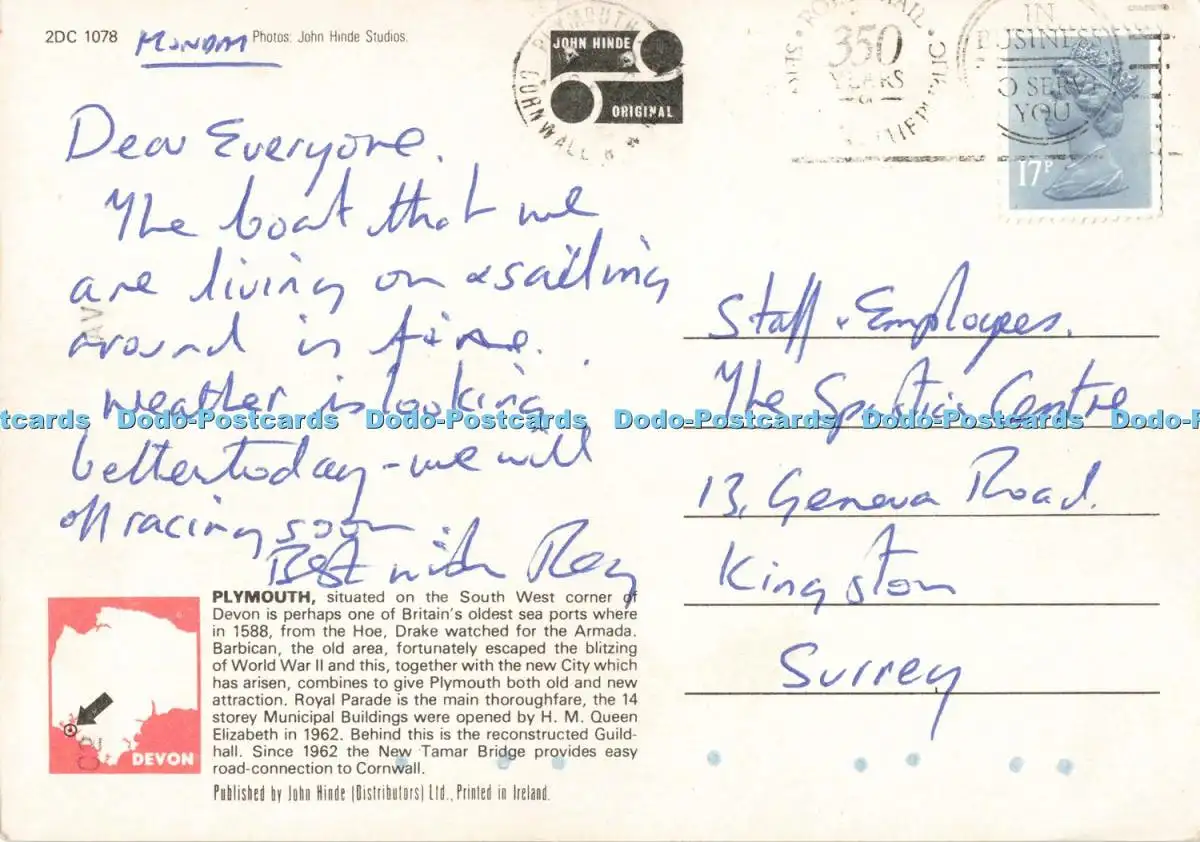 2DC 1078 MONDAY Photos: John Hinde Studios.
JOHN HINDE
ORIGINAL
PLYMOUTH
CORNWALL
ROYAL MAIL
350
YEARS
OF
IN
BUSINESS
TO SERVE
YOU
17P
Dear Everyone.
The boat that we
are living on & sailing
around in is fine.
Weather is looking
better today - we will
off racing soon.
Best wishes Reg
Staff & Employees.
The Spastic Centre
13, Geneva Road.
Kingston
Surrey
Dodo-Postcards Dodo-Postcards Dodo-Postcards Dodo-Postcards Dodo-Postcards
PLYMOUTH, situated on the South West corner of
Devon is perhaps one of Britain's oldest sea ports where
in 1588, from the Hoe, Drake watched for the Armada.
Barbican, the old area, fortunately escaped the blitzing
of World War II and this, together with the new City which
has arisen, combines to give Plymouth both old and new
attraction. Royal Parade is the main thoroughfare, the 14
storey Municipal Buildings were opened by H. M. Queen
Elizabeth in 1962. Behind this is the reconstructed Guild-
hall. Since 1962 the New Tamar Bridge provides easy
road-connection to Cornwall.
Published by John Hinde (Distributors) Ltd., Printed in Ireland.
DEVON